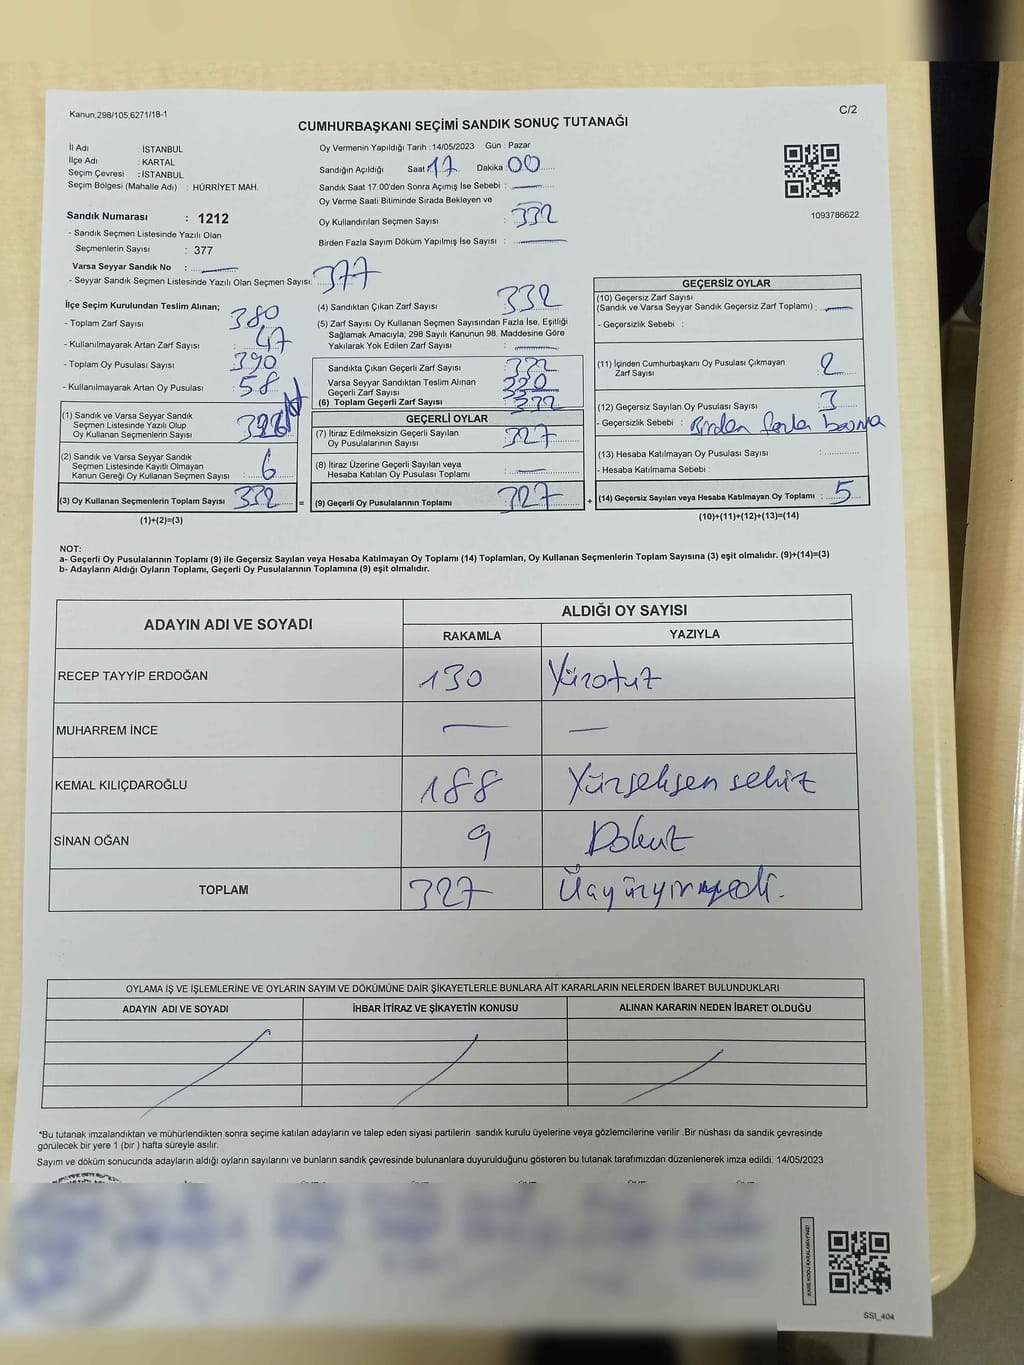 Kanun;298/105,6271/18-1
C/2
CUMHURBAŞKANI SEÇİMİ SANDIK SONUÇ TUTANAĞI
İl Adı : İSTANBUL
İlçe Adı : KARTAL
Seçim Çevresi : İSTANBUL
Seçim Bölgesi (Mahalle Adı) : HÜRRİYET MAH.
Sandık Numarası : 1212
- Sandık Seçmen Listesinde Yazılı Olan
Seçmenlerin Sayısı : 377
Varsa Seyyar Sandık No :
- Seyyar Sandık Seçmen Listesinde Yazılı Olan Seçmen Sayısı: 377
Oy Vermenin Yapıldığı Tarih :14/05/2023 Gün : Pazar
Sandığın Açıldığı Saat 17 Dakika 00
Sandık Saat 17:00'den Sonra Açımış İse Sebebi :
Oy Verme Saati Bitiminde Sırada Bekleyen ve
Oy Kullandırılan Seçmen Sayısı : 332
Birden Fazla Sayım Döküm Yapılmış İse Sayısı :
1093786622
İlçe Seçim Kurulundan Teslim Alınan;
- Toplam Zarf Sayısı : 380
- Kullanılmayarak Artan Zarf Sayısı : 47
- Toplam Oy Pusulası Sayısı : 390
- Kullanılmayarak Artan Oy Pusulası : 58
(1) Sandık ve Varsa Seyyar Sandık
Seçmen Listesinde Yazılı Olup
Oy Kullanan Seçmenlerin Sayısı : 326
(2) Sandık ve Varsa Seyyar Sandık
Seçmen Listesinde Kayıtlı Olmayan
Kanun Gereği Oy Kullanan Seçmen Sayısı : 6
(3) Oy Kullanan Seçmenlerin Toplam Sayısı : 332 =
(1)+(2)=(3)
(4) Sandıktan Çıkan Zarf Sayısı : 332
(5) Zarf Sayısı Oy Kullanan Seçmen Sayısından Fazla İse, Eşitliği
Sağlamak Amacıyla; 298 Sayılı Kanunun 98. Maddesine Göre
Yakılarak Yok Edilen Zarf Sayısı :
Sandıkta Çıkan Geçerli Zarf Sayısı : 332
Varsa Seyyar Sandıktan Teslim Alınan
Geçerli Zarf Sayısı :
(6) Toplam Geçerli Zarf Sayısı : 332
GEÇERLİ OYLAR
(7) İtiraz Edilmeksizin Geçerli Sayılan
Oy Pusulalarının Sayısı : 327
(8) İtiraz Üzerine Geçerli Sayılan veya
Hesaba Katılan Oy Pusulası Toplamı :
(9) Geçerli Oy Pusulalarının Toplamı : 327 +
GEÇERSİZ OYLAR
(10) Geçersiz Zarf Sayısı
(Sandık ve Varsa Seyyar Sandık Geçersiz Zarf Toplamı) :
- Geçersizlik Sebebi :
(11) İçinden Cumhurbaşkanı Oy Pusulası Çıkmayan
Zarf Sayısı : 2
(12) Geçersiz Sayılan Oy Pusulası Sayısı : 3
- Geçersizlik Sebebi : Birden fazla basma
(13) Hesaba Katılmayan Oy Pusulası Sayısı :
- Hesaba Katılmama Sebebi :
(14) Geçersiz Sayılan veya Hesaba Katılmayan Oy Toplamı : 5
(10)+(11)+(12)+(13)=(14)
NOT:
a- Geçerli Oy Pusulalarının Toplamı (9) ile Geçersiz Sayılan veya Hesaba Katılmayan Oy Toplamı (14) Toplamları, Oy Kullanan Seçmenlerin Toplam Sayısına (3) eşit olmalıdır. (9)+(14)=(3)
b- Adayların Aldığı Oyların Toplamı, Geçerli Oy Pusulalarının Toplamına (9) eşit olmalıdır.
ADAYIN ADI VE SOYADI
ALDIĞI OY SAYISI
RAKAMLA YAZIYLA
RECEP TAYYİP ERDOĞAN 130 Yüzotuz
MUHARREM İNCE
KEMAL KILIÇDAROĞLU 188 Yüzseksen sekiz
SİNAN OĞAN 9 Dokuz
TOPLAM 327 Üçyüzyirmiyedi.
OYLAMA İŞ VE İŞLEMLERİNE VE OYLARIN SAYIM VE DÖKÜMÜNE DAİR ŞİKAYETLERLE BUNLARA AİT KARARLARIN NELERDEN İBARET BULUNDUKLARI
ADAYIN ADI VE SOYADI İHBAR İTİRAZ VE ŞİKAYETİN KONUSU ALINAN KARARIN NEDEN İBARET OLDUĞU
*Bu tutanak imzalandıktan ve mühürlendikten sonra seçime katılan adayların ve talep eden siyasi partilerin sandık kurulu üyelerine veya gözlemcilerine verilir .Bir nüshası da sandık çevresinde
görülecek bir yere 1 (bir ) hafta süreyle asılır.
Sayım ve döküm sonucunda adayların aldığı oyların sayılarını ve bunların sandık çevresinde bulunanlara duyurulduğunu gösteren bu tutanak tarafımızdan düzenlenerek imza edildi. 14/05/2023
KARE KODU KARALAMAYINIZ!
SSI_404